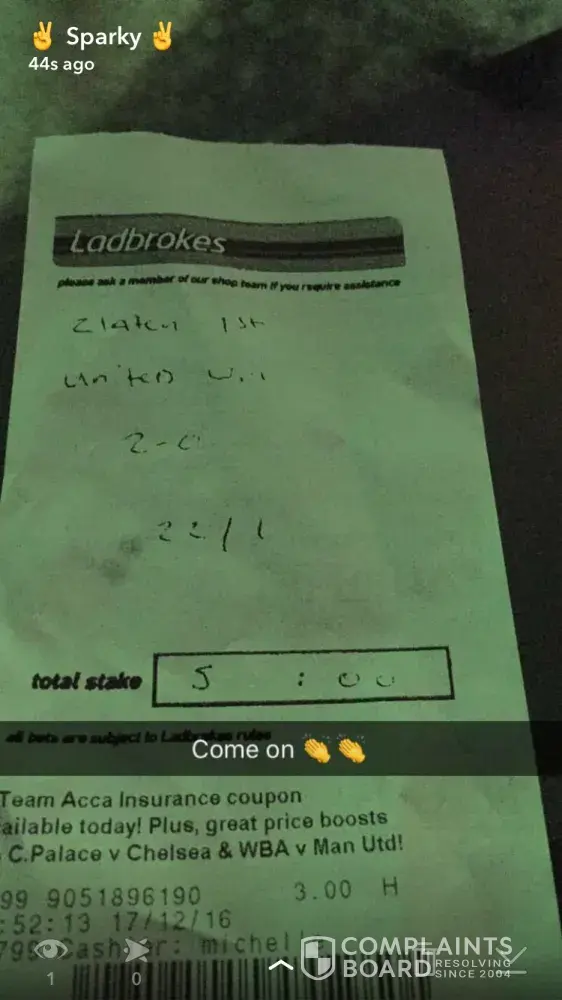 ✌ Sparky ✌
44s ago
Ladbrokes
please ask a member of our shop team if you require assistance
Zlatan 1st
United Win
2-0
22/1
total stake 5 : 00
all bets are subject to Ladbrokes rules
Come on 👏👏
Team Acca Insurance coupon
ailable today! Plus, great price boosts
C.Palace v Chelsea & WBA v Man Utd!
99 9051896190 3.00 H
:52:13 17/12/16
799 Cashier: michell
1 0
COMPLAINTS
BOARD RESOLVING
SINCE 2004